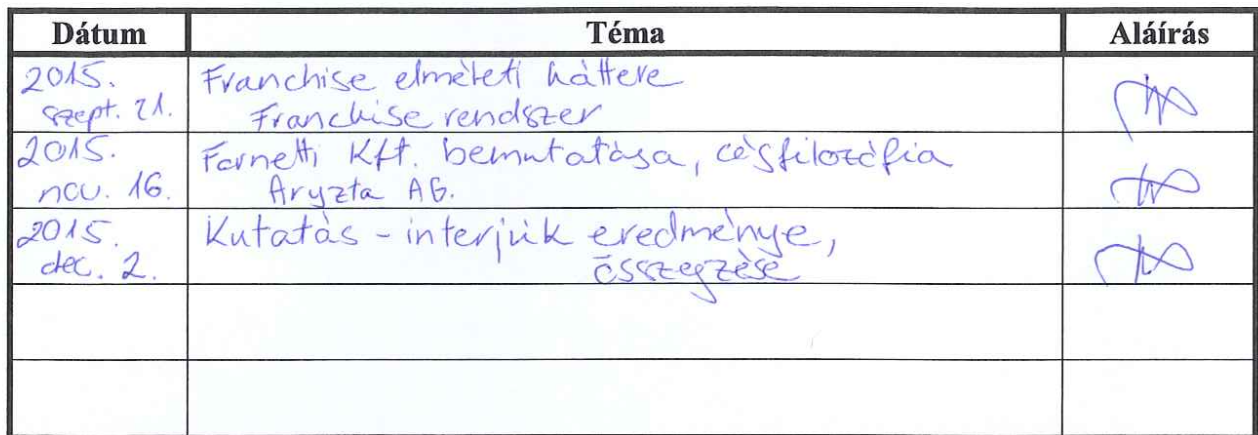 Dátum Téma Aláírás
2015. Franchise elméleti háttere
szept. 21. Franchise rendszer
2015. Fornetti Kft. bemutatása, cégfilozófia
nov. 16. Aryzta AG.
2015. Kutatás - interjúk eredménye,
dec. 2. összegzése